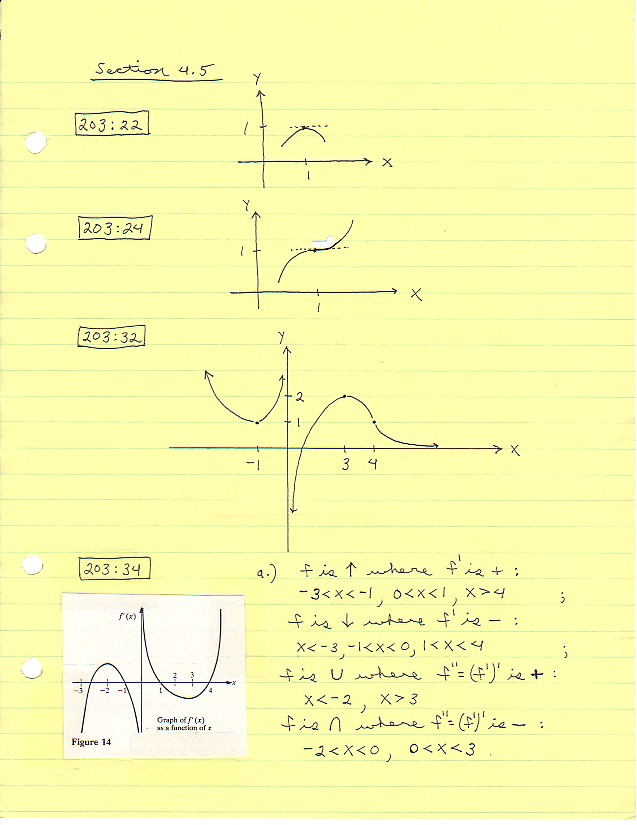 Section 4.5
203:22
Y
1
X
1
203:24
Y
1
X
1
203:32
Y
2
1
X
-1 3 4
203:34
a.) f is ↑ where f' is + :
-3<x<-1, 0<x<1, x>4 ;
f is ↓ where f' is - :
x<-3, -1<x<0, 1<x<4 ;
f is ∪ where f''=(f')' is + :
x<-2, x>3
f is ∩ where f''=(f')' is - :
-2<x<0, 0<x<3.
f'(x)
2 3
x
-3 -2 -1 1 4
Graph of f'(x)
as a function of x
Figure 14